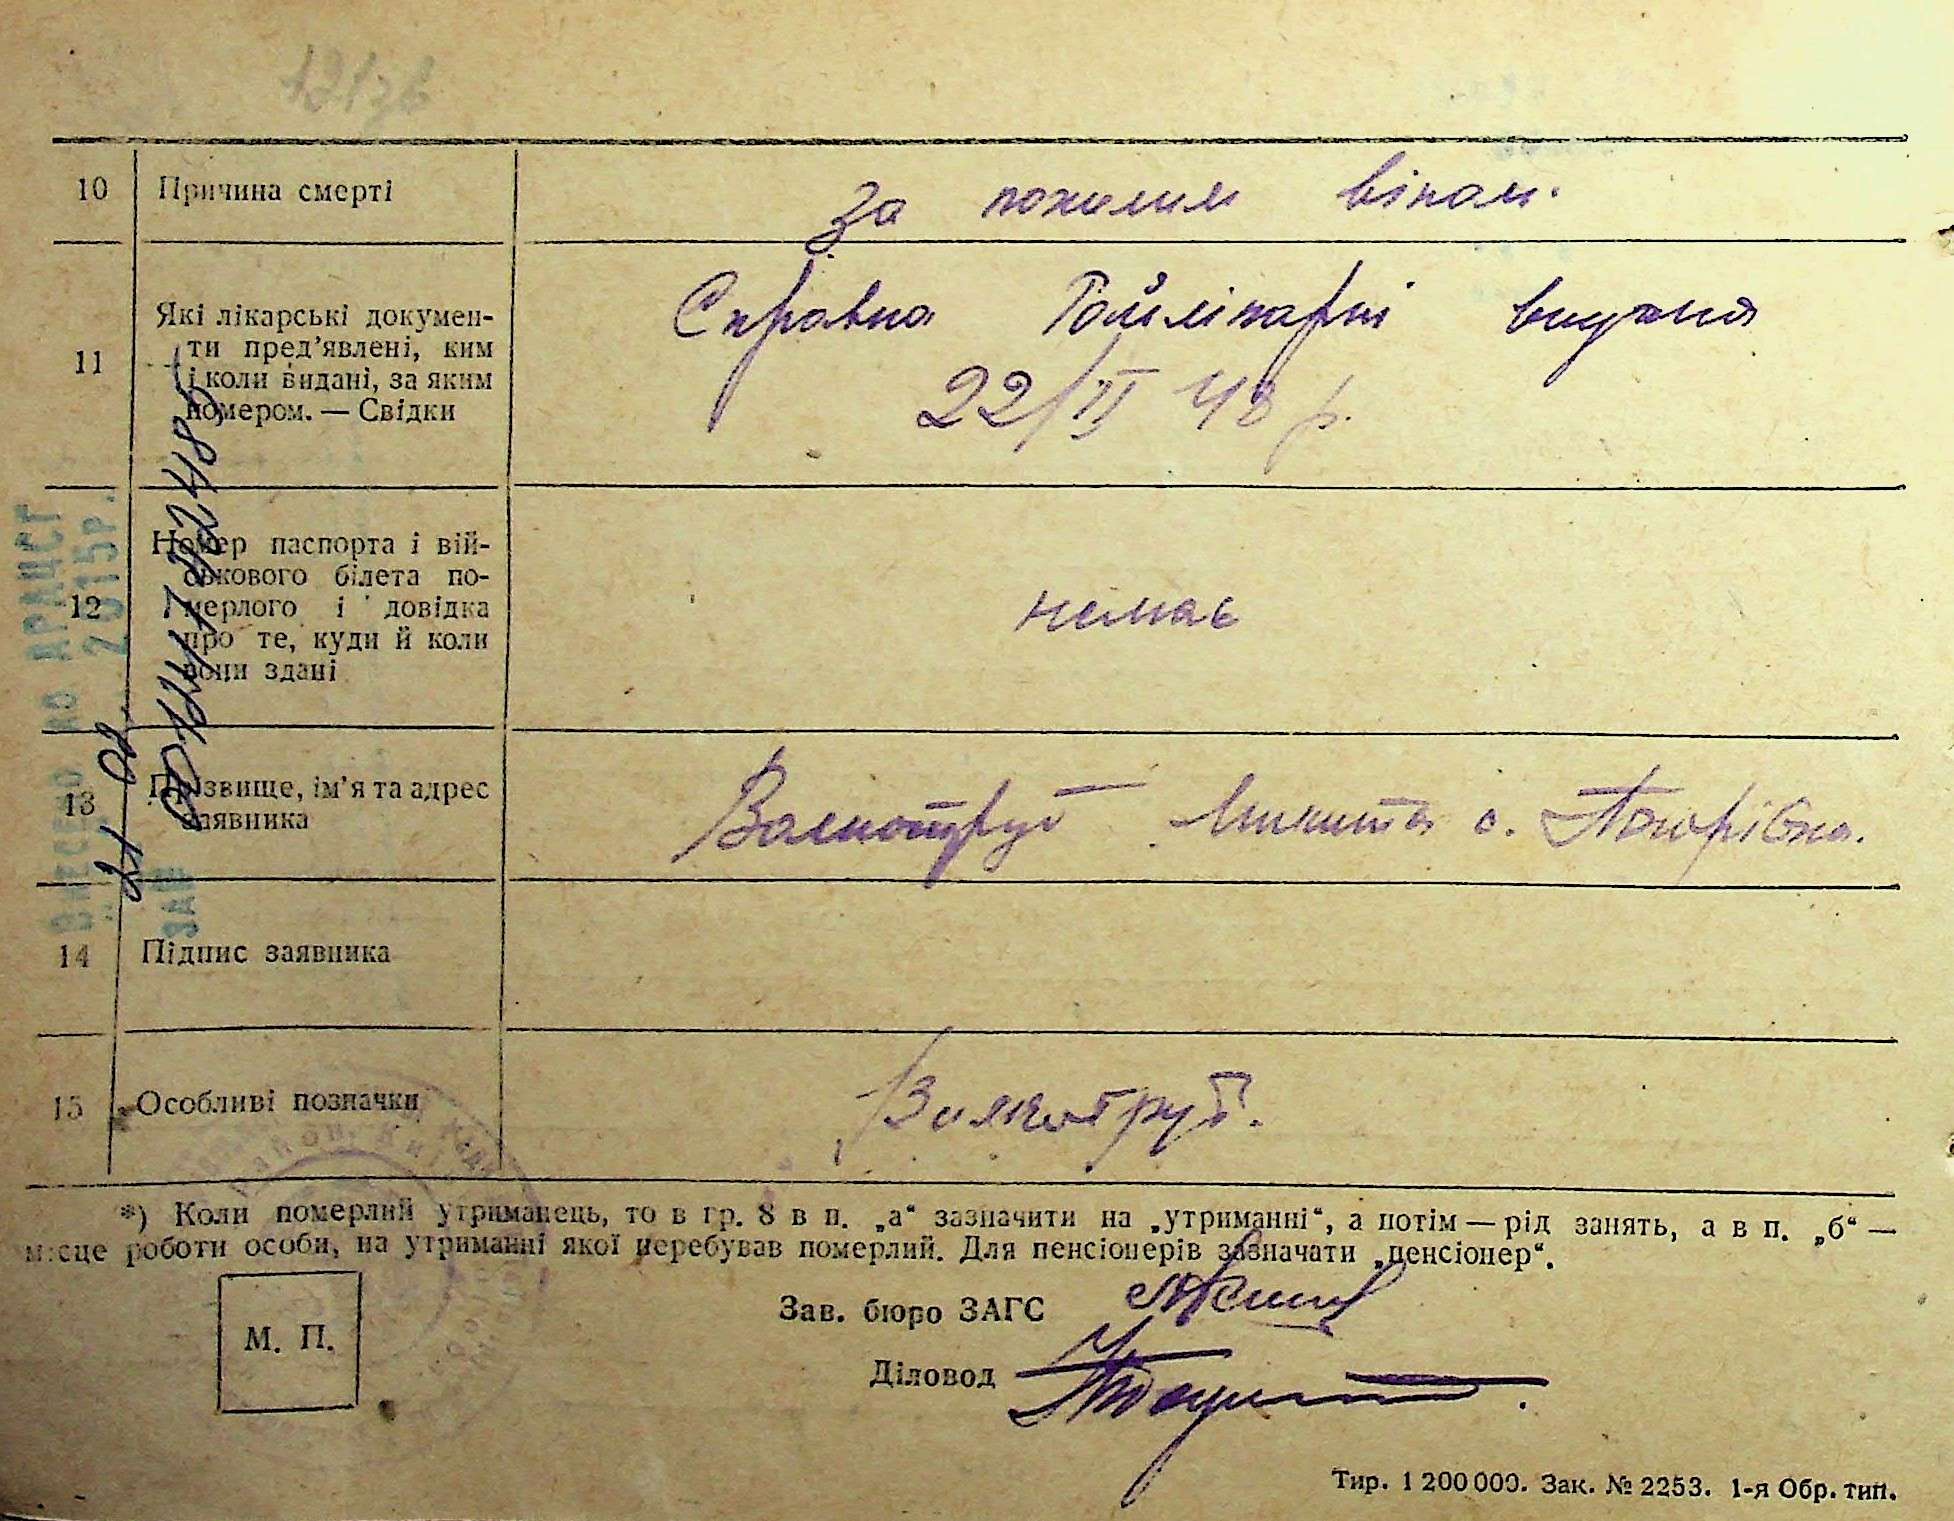 10 Причина смерті за похилим віком.
11 Які лікарські докумен-
ти пред'явлені, ким
і коли видані, за яким
номером. — Свідки
Справка Райлікарні видана
22/II 48 р.
12 Номер паспорта і вій-
ськового білета по-
мерлого і довідка
про те, куди й коли
вони здані
немає
13 Прізвище, ім'я та адрес
заявника
Микита с.
14 Підпис заявника
15 Особливі позначки
*) Коли померлий утриманець, то в гр. 8 в п. „а“ зазначити на „утриманні“, а потім — рід занять, а в п. „б“ —
місце роботи особи, на утриманні якої перебував померлий. Для пенсіонерів зазначати „пенсіонер“.
М. П.
Зав. бюро ЗАГС
Діловод
Тир. 1 200 000. Зак. № 2253. 1-я Обр. тип.
ВНЕСЕНО ДО ДРАЦСГ
2015р.
ЗА №